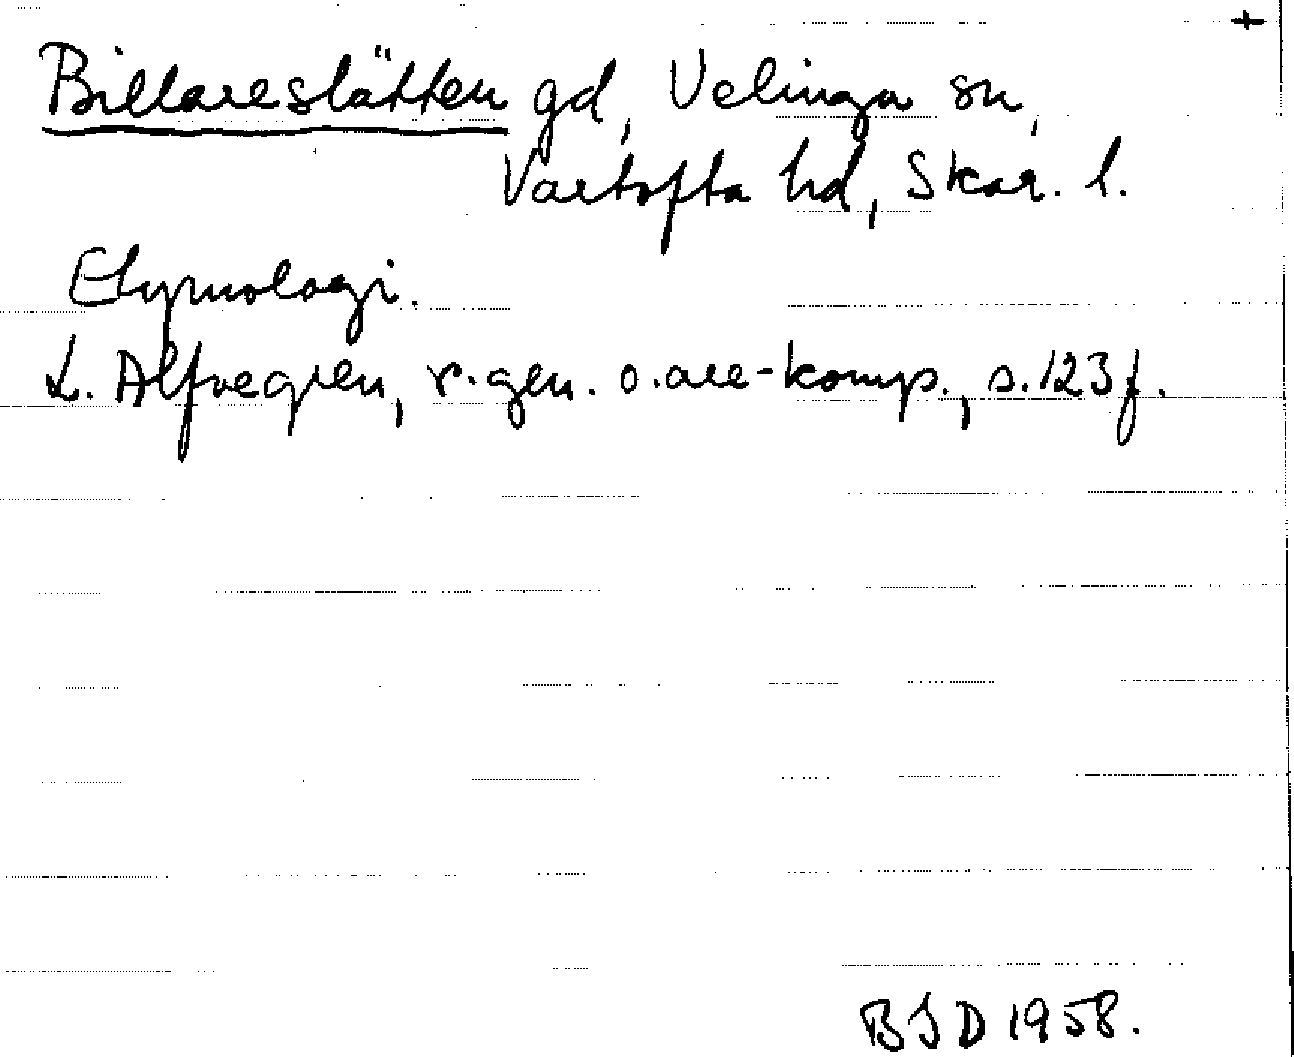 +
Billareslätten gd, Velinga sn,
Vartofta hd, Skar. l.
Etymologi.
L. Alfvegren, r-gen. o. are-komp., s. 123 f.
BSD 1958.